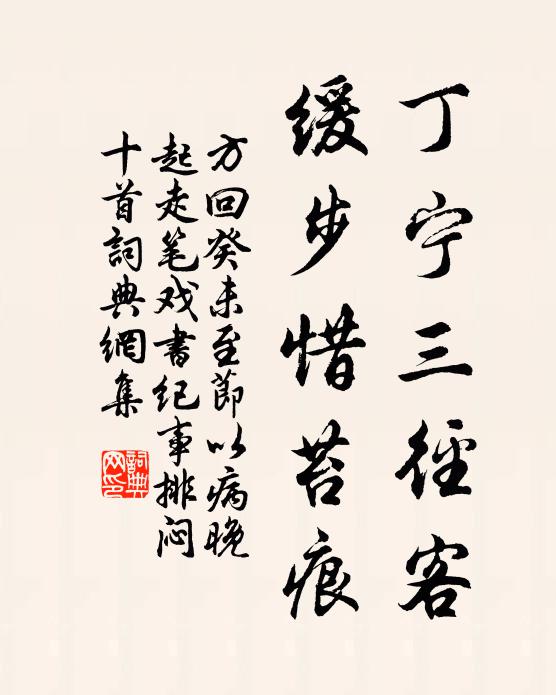 丁宁三徑客
缓步惜苔痕
方回癸未至節以病晚
起走笔戏書纪事排闷
十首詞典網集
詞典
网印